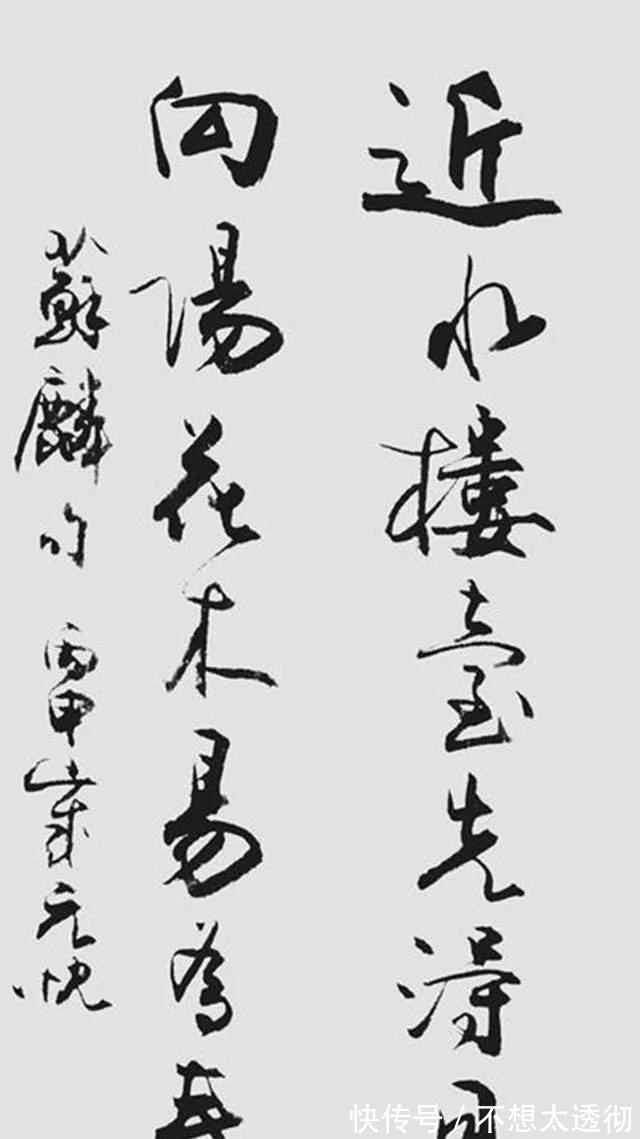 近水樓臺先得月
向陽花木易為春
蘇麟句 丙申歲元
快传号 / 不想太透彻